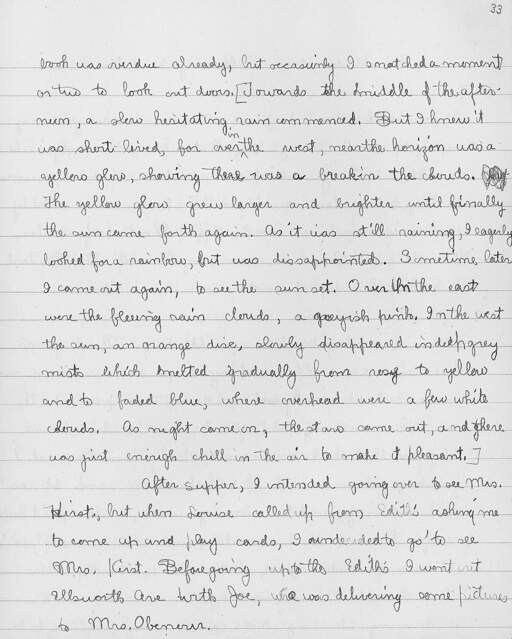 33
book was overdue already, but occasionly I snatched a moment
or two to look out doors. [Towards the middle of the after-
noon, a slow hesitating rain commenced. But I knew it
was short lived, for over in the west, near the horizon was a
yellow glow, showing there was a break in the clouds.
The yellow glow grew larger and brighter until finally
the sun came forth again. As it was still raining, I eagerly
looked for a rainbow, but was dissappointed. Sometime later
I came out again, to see the sun set. Over in the east
were the fleeing rain clouds, a greyish pink. In the west
the sun, an orange disc, slowly disappeared in deep grey
mists which melted gradually from rosy to yellow
and to faded blue, where overhead were a few white
clouds. As night came on, the stars came out, and there
was just enough chill in the air to make it pleasant.]
After supper, I intended going over to see Mrs.
Hirst, but when Louise called up from Edith's asking me
to come up and play cards, I to go to see
Mrs. Hirst. Before going up to the Edith's I went out
Ellsworth Ave with Joe, who was delivering some pictures
to Mrs.